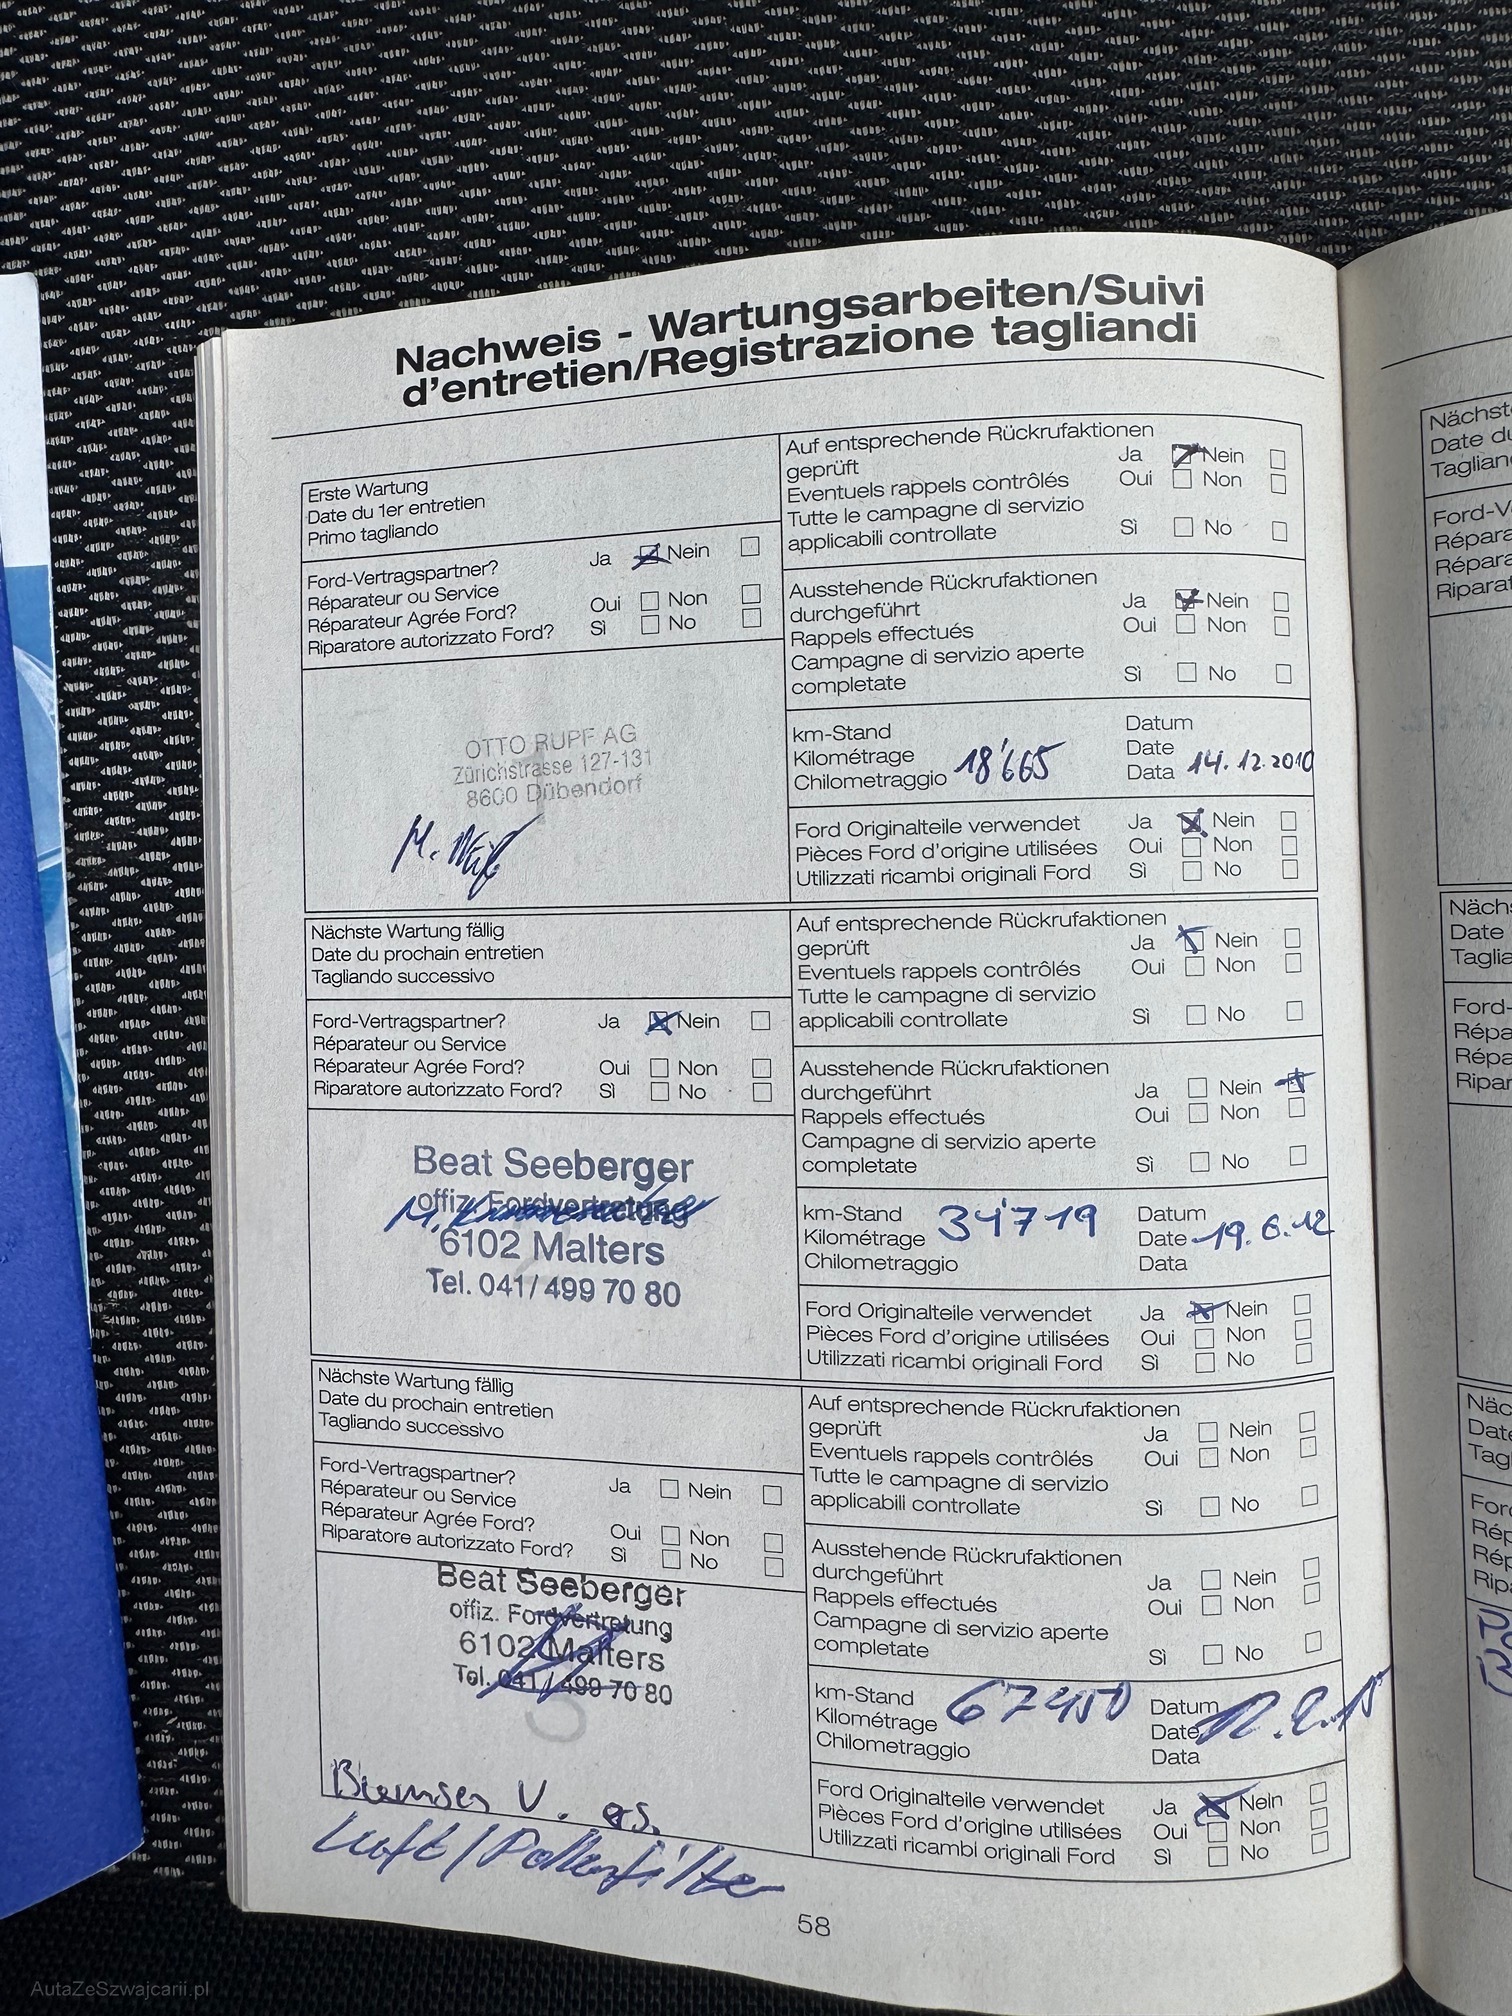 Nachweis - Wartungsarbeiten/Suivi
d'entretien/Registrazione tagliandi
Erste Wartung
Date du 1er entretien
Primo tagliando
Ford-Vertragspartner? Ja Nein
Réparateur ou Service
Réparateur Agrée Ford? Oui Non
Riparatore autorizzato Ford? Sì No
OTTO RUPF AG
Zürichstrasse 127-131
8600 Dübendorf
Auf entsprechende Rückrufaktionen
geprüft Ja Nein
Eventuels rappels contrôlés Oui Non
Tutte le campagne di servizio
applicabili controllate Sì No
Ausstehende Rückrufaktionen
durchgeführt Ja Nein
Rappels effectués Oui Non
Campagne di servizio aperte
completate Sì No
km-Stand Datum
Kilométrage Date
Chilometraggio 18'665 Data 14.12.2010
Ford Originalteile verwendet Ja Nein
Pièces Ford d'origine utilisées Oui Non
Utilizzati ricambi originali Ford Sì No
Nächste Wartung fällig
Date du prochain entretien
Tagliando successivo
Ford-Vertragspartner? Ja Nein
Réparateur ou Service
Réparateur Agrée Ford? Oui Non
Riparatore autorizzato Ford? Sì No
Beat Seeberger
offiz. Fordvertretung
6102 Malters
Tel. 041/499 70 80
Auf entsprechende Rückrufaktionen
geprüft Ja Nein
Eventuels rappels contrôlés Oui Non
Tutte le campagne di servizio
applicabili controllate Sì No
Ausstehende Rückrufaktionen
durchgeführt Ja Nein
Rappels effectués Oui Non
Campagne di servizio aperte
completate Sì No
km-Stand 34'719 Datum
Kilométrage Date 19.6.12
Chilometraggio Data
Ford Originalteile verwendet Ja Nein
Pièces Ford d'origine utilisées Oui Non
Utilizzati ricambi originali Ford Sì No
Nächste Wartung fällig
Date du prochain entretien
Tagliando successivo
Ford-Vertragspartner? Ja Nein
Réparateur ou Service
Réparateur Agrée Ford? Oui Non
Riparatore autorizzato Ford? Sì No
Beat Seeberger
offiz. Fordvertretung
6102 Malters
Tel. 041/499 70 80
3
Bremsen V. ers.
Luft/Pollenfilter
Auf entsprechende Rückrufaktionen
geprüft Ja Nein
Eventuels rappels contrôlés Oui Non
Tutte le campagne di servizio
applicabili controllate Sì No
Ausstehende Rückrufaktionen
durchgeführt Ja Nein
Rappels effectués Oui Non
Campagne di servizio aperte
completate Sì No
km-Stand 67450 Datum
Kilométrage Date
Chilometraggio Data
Ford Originalteile verwendet Ja Nein
Pièces Ford d'origine utilisées Oui Non
Utilizzati ricambi originali Ford Sì No
58
AutaZeSzwajcarii.pl